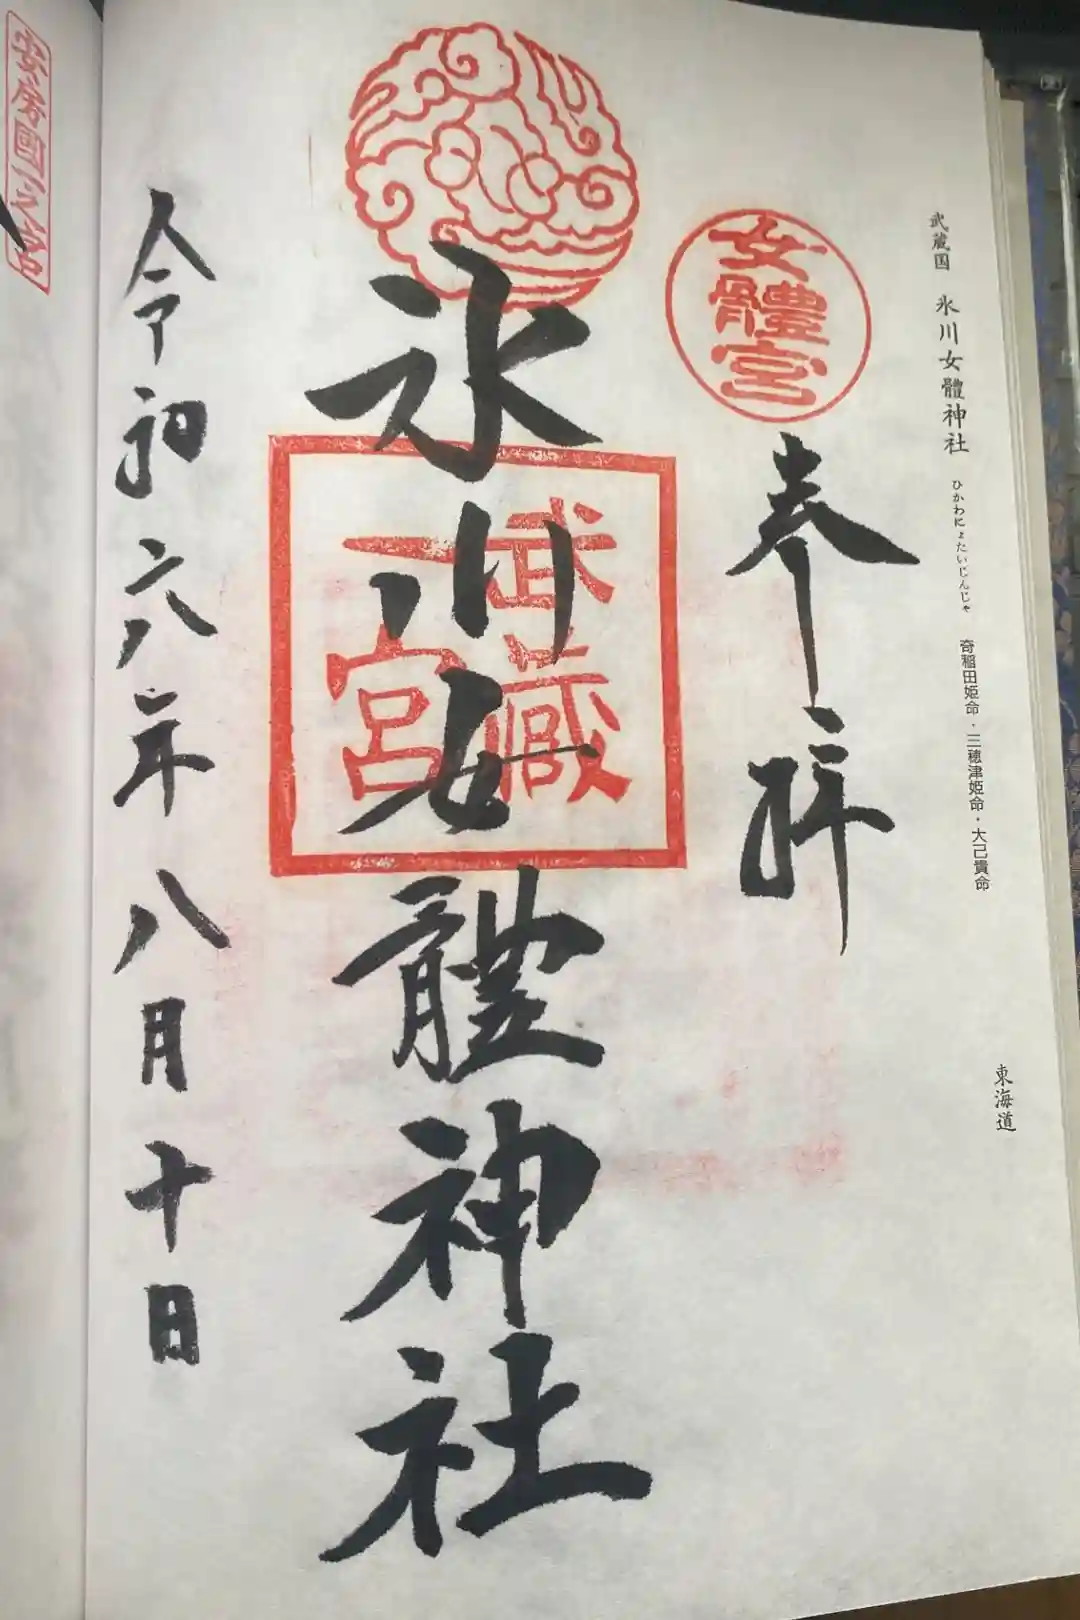 武蔵国 氷川女體神社 ひかわにょたいじんじゃ 奇稲田姫命・三穂津姫命・大己貴命
東海道
女體宮
奉拝
氷川女體神社
武蔵
一宮
令和六年八月十日
安房國一之宮